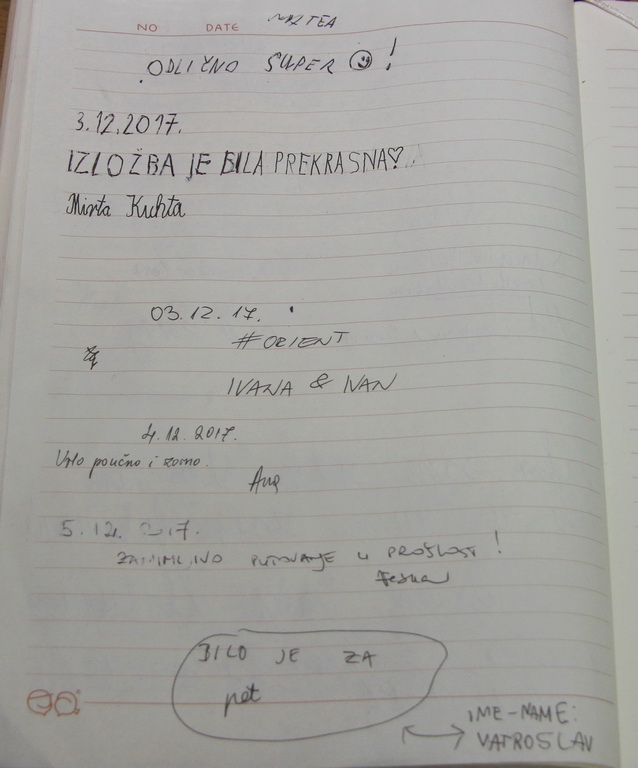 NO DATE
ODLIČNO SUPER !
3.12.2017.
IZLOŽBA JE BILA PREKRASNA♡..
Mirta Kuhta
03.12.17.
#ORIENT
IVANA & IVAN
4.12.2017.
Vrlo poučno i zorno.
Ana
5.12.2017.
ZANIMLJIVO PUTOVANJE U PROŠLOST !
BILO JE ZA
pet
IME-NAME:
VATROSLAV